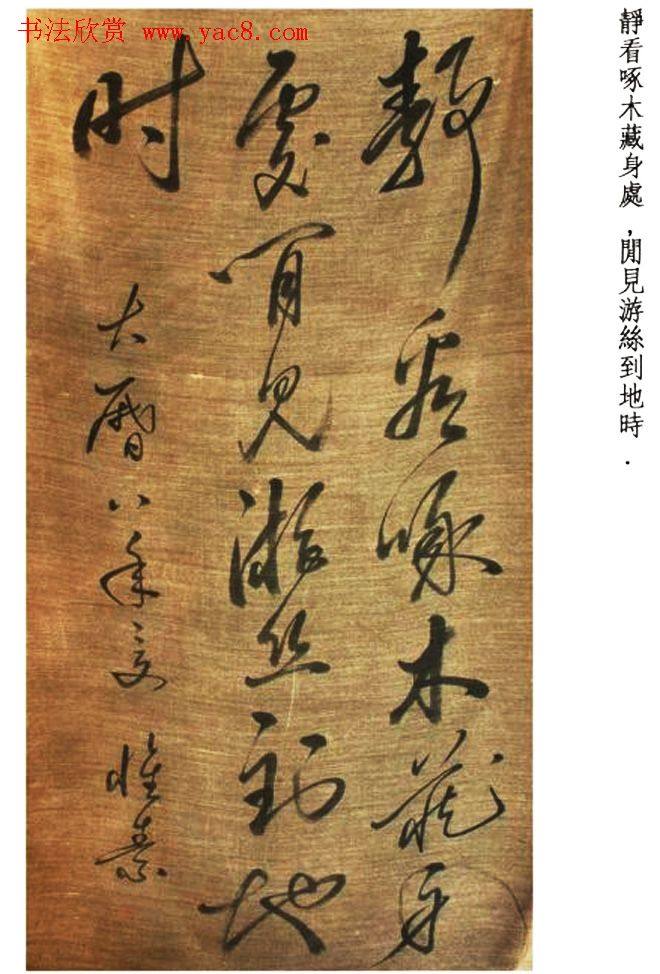 书法欣赏 www.yac8.com
靜看啄木藏身處,閒見游絲到地時.
靜看啄木藏身
處閒見游丝到地
时
大曆八年夏 懷素